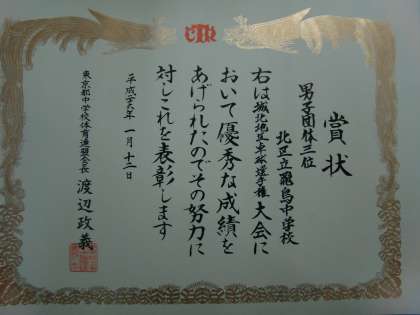 賞状
男子団体三位
北区立飛鳥中学校
右は城北地区卓球選手権大会に
おいて優秀な成績を
あげられたのでその努力に
対しこれを表彰します
平成 年 一月十二日
東京都中学校体育連盟会長 渡辺政義